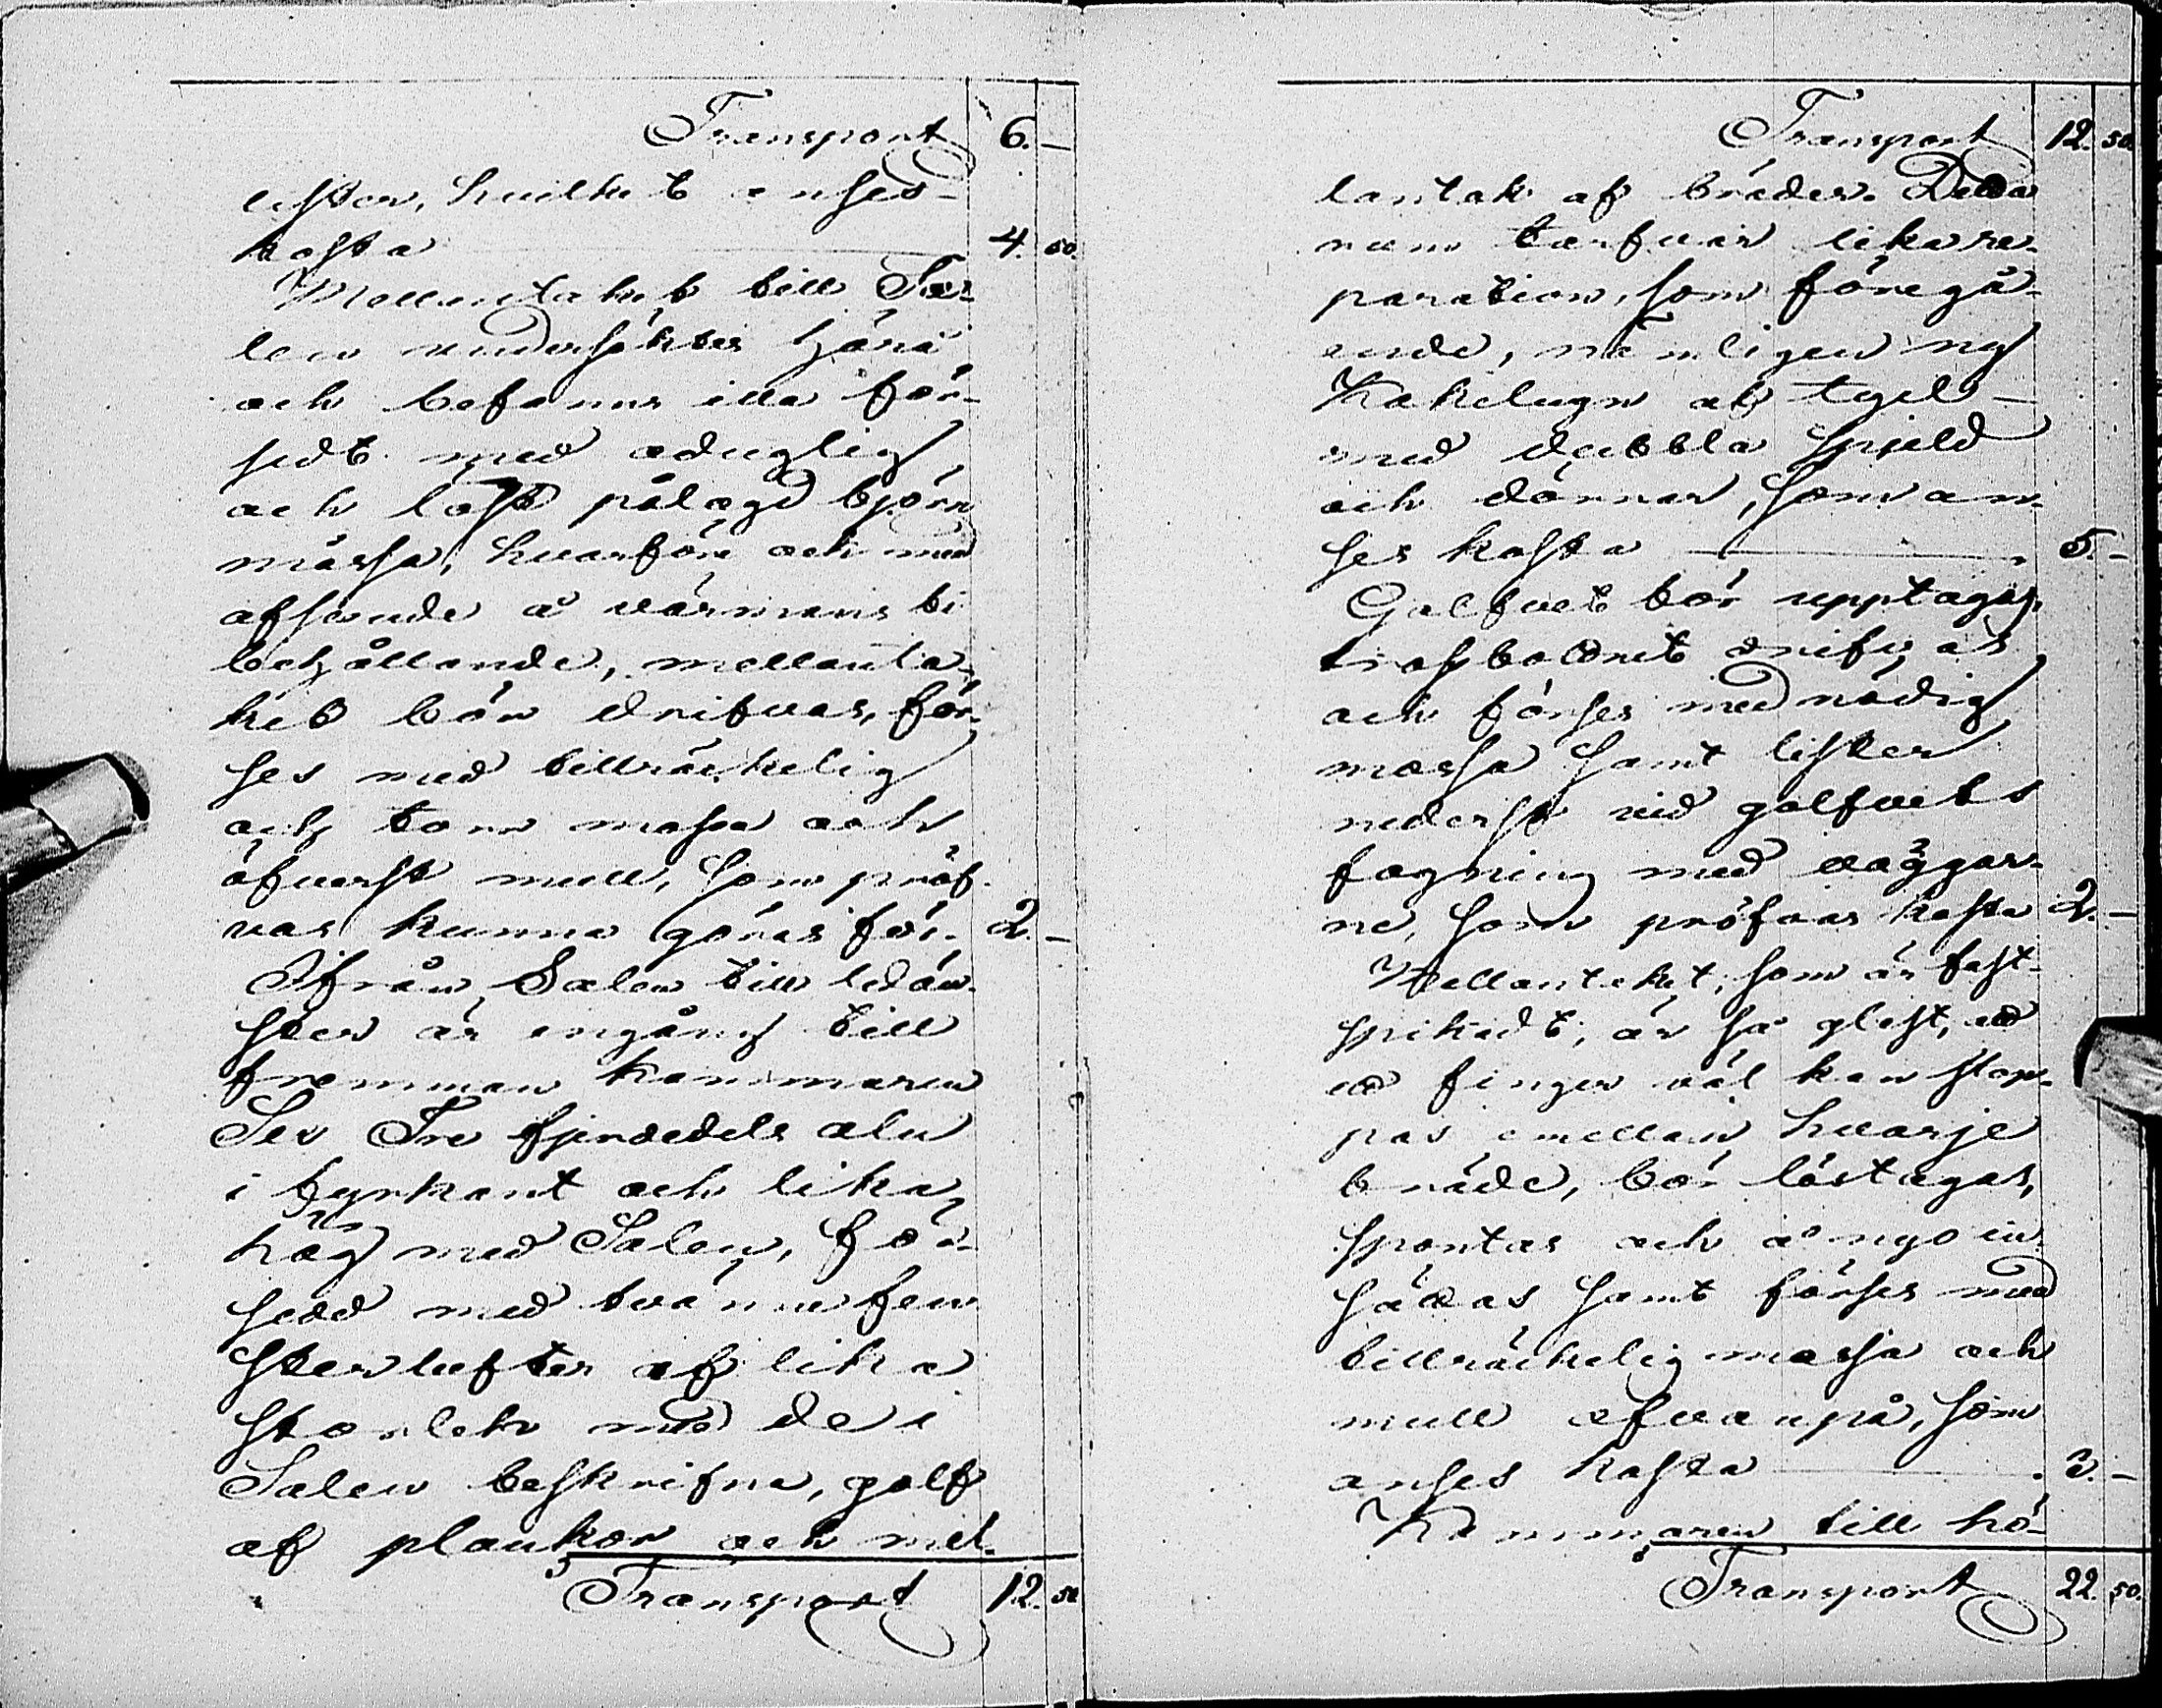 Transport 6. —
lister, hvilket anses
kosta 4. 50.
Mellantaket till Sa-
len undersöktes härå
och befanns illa för-
sedt med oduglig
och löst pålagd björn
mossa, hvarföre och med
afseende å värmens bi
behållande, mellanta-
ket bör drifvas, för-
ses med tillräckelig
och torr mossa och
öfverst mull, som pröf-
vas kunna göras för. 2. —
Ifrån Salen till vän-
ster är ingång till
främman kammaren
Sex Tre fjerdedels aln
i fyrkant och lika
hög med Salen, för-
sedd med tvänne fen
sterlufter af lika
storlek med de i
Salen beskrifne, golf
af plankor och mel-
Transport 12. 50
Transport 12. 50.
lantak af bräder. Detta
rum tarfvar lika re-
paration, som föregå-
ende, nämligen ny
Kakelugn af tegel
med dubbla spjeld
och dörrar, som an-
ses kosta 5. —
Golfvet bör upptagas,
trossbottnet drifvas
och förses med nödig
mossa samt lister
nederst vid golfvets
fogning med väggar-
ne, som pröfvas kosta 2. —
Mellantaket, som är fast-
spikadt, är så glest, att
ett finger väl kan stop-
pas emellan hvarje
bräde, bör löstagas,
spontas och å nyo in
sättas samt förses med
tillräckelig mossa och
mull ofvanpå, som
anses kosta 3. —
Kammaren till hö-
Transport 22. 50.